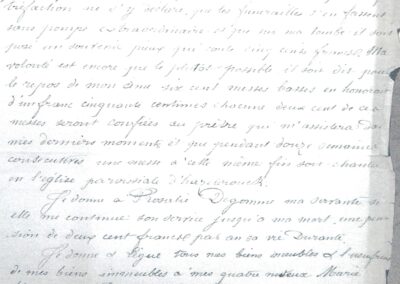 tréfaction ne s'y déclare, que les funerailles s'en fassent
sans pompe extraordinaire et que sur ma tombe il soit
posé un souvenir pieux qui coute cinq cents francs. Ma
volonté est encore que le plutot possible il soit dit pour
le repos de mon ame six cent messes basses en honoraire
d'un franc cinquante centimes chacune deux cent de ces
messes seront confiées au prêtre qui m'assistera dans
mes derniers moments et que pendant douze semaines
consécutives une messe a cette même fin soit chantée
en l'église paroissiale d'hazebrouck.
Je donne a Rosalie Degomme ma servante si
elle me continue son service jusqu'a ma mort, une pen
sion de deux cent francs par an sa vie Durante.
Je donne et légue tous mes biens meubles & l'usufruit
de mes biens immeubles a mes quatre neveux Marie